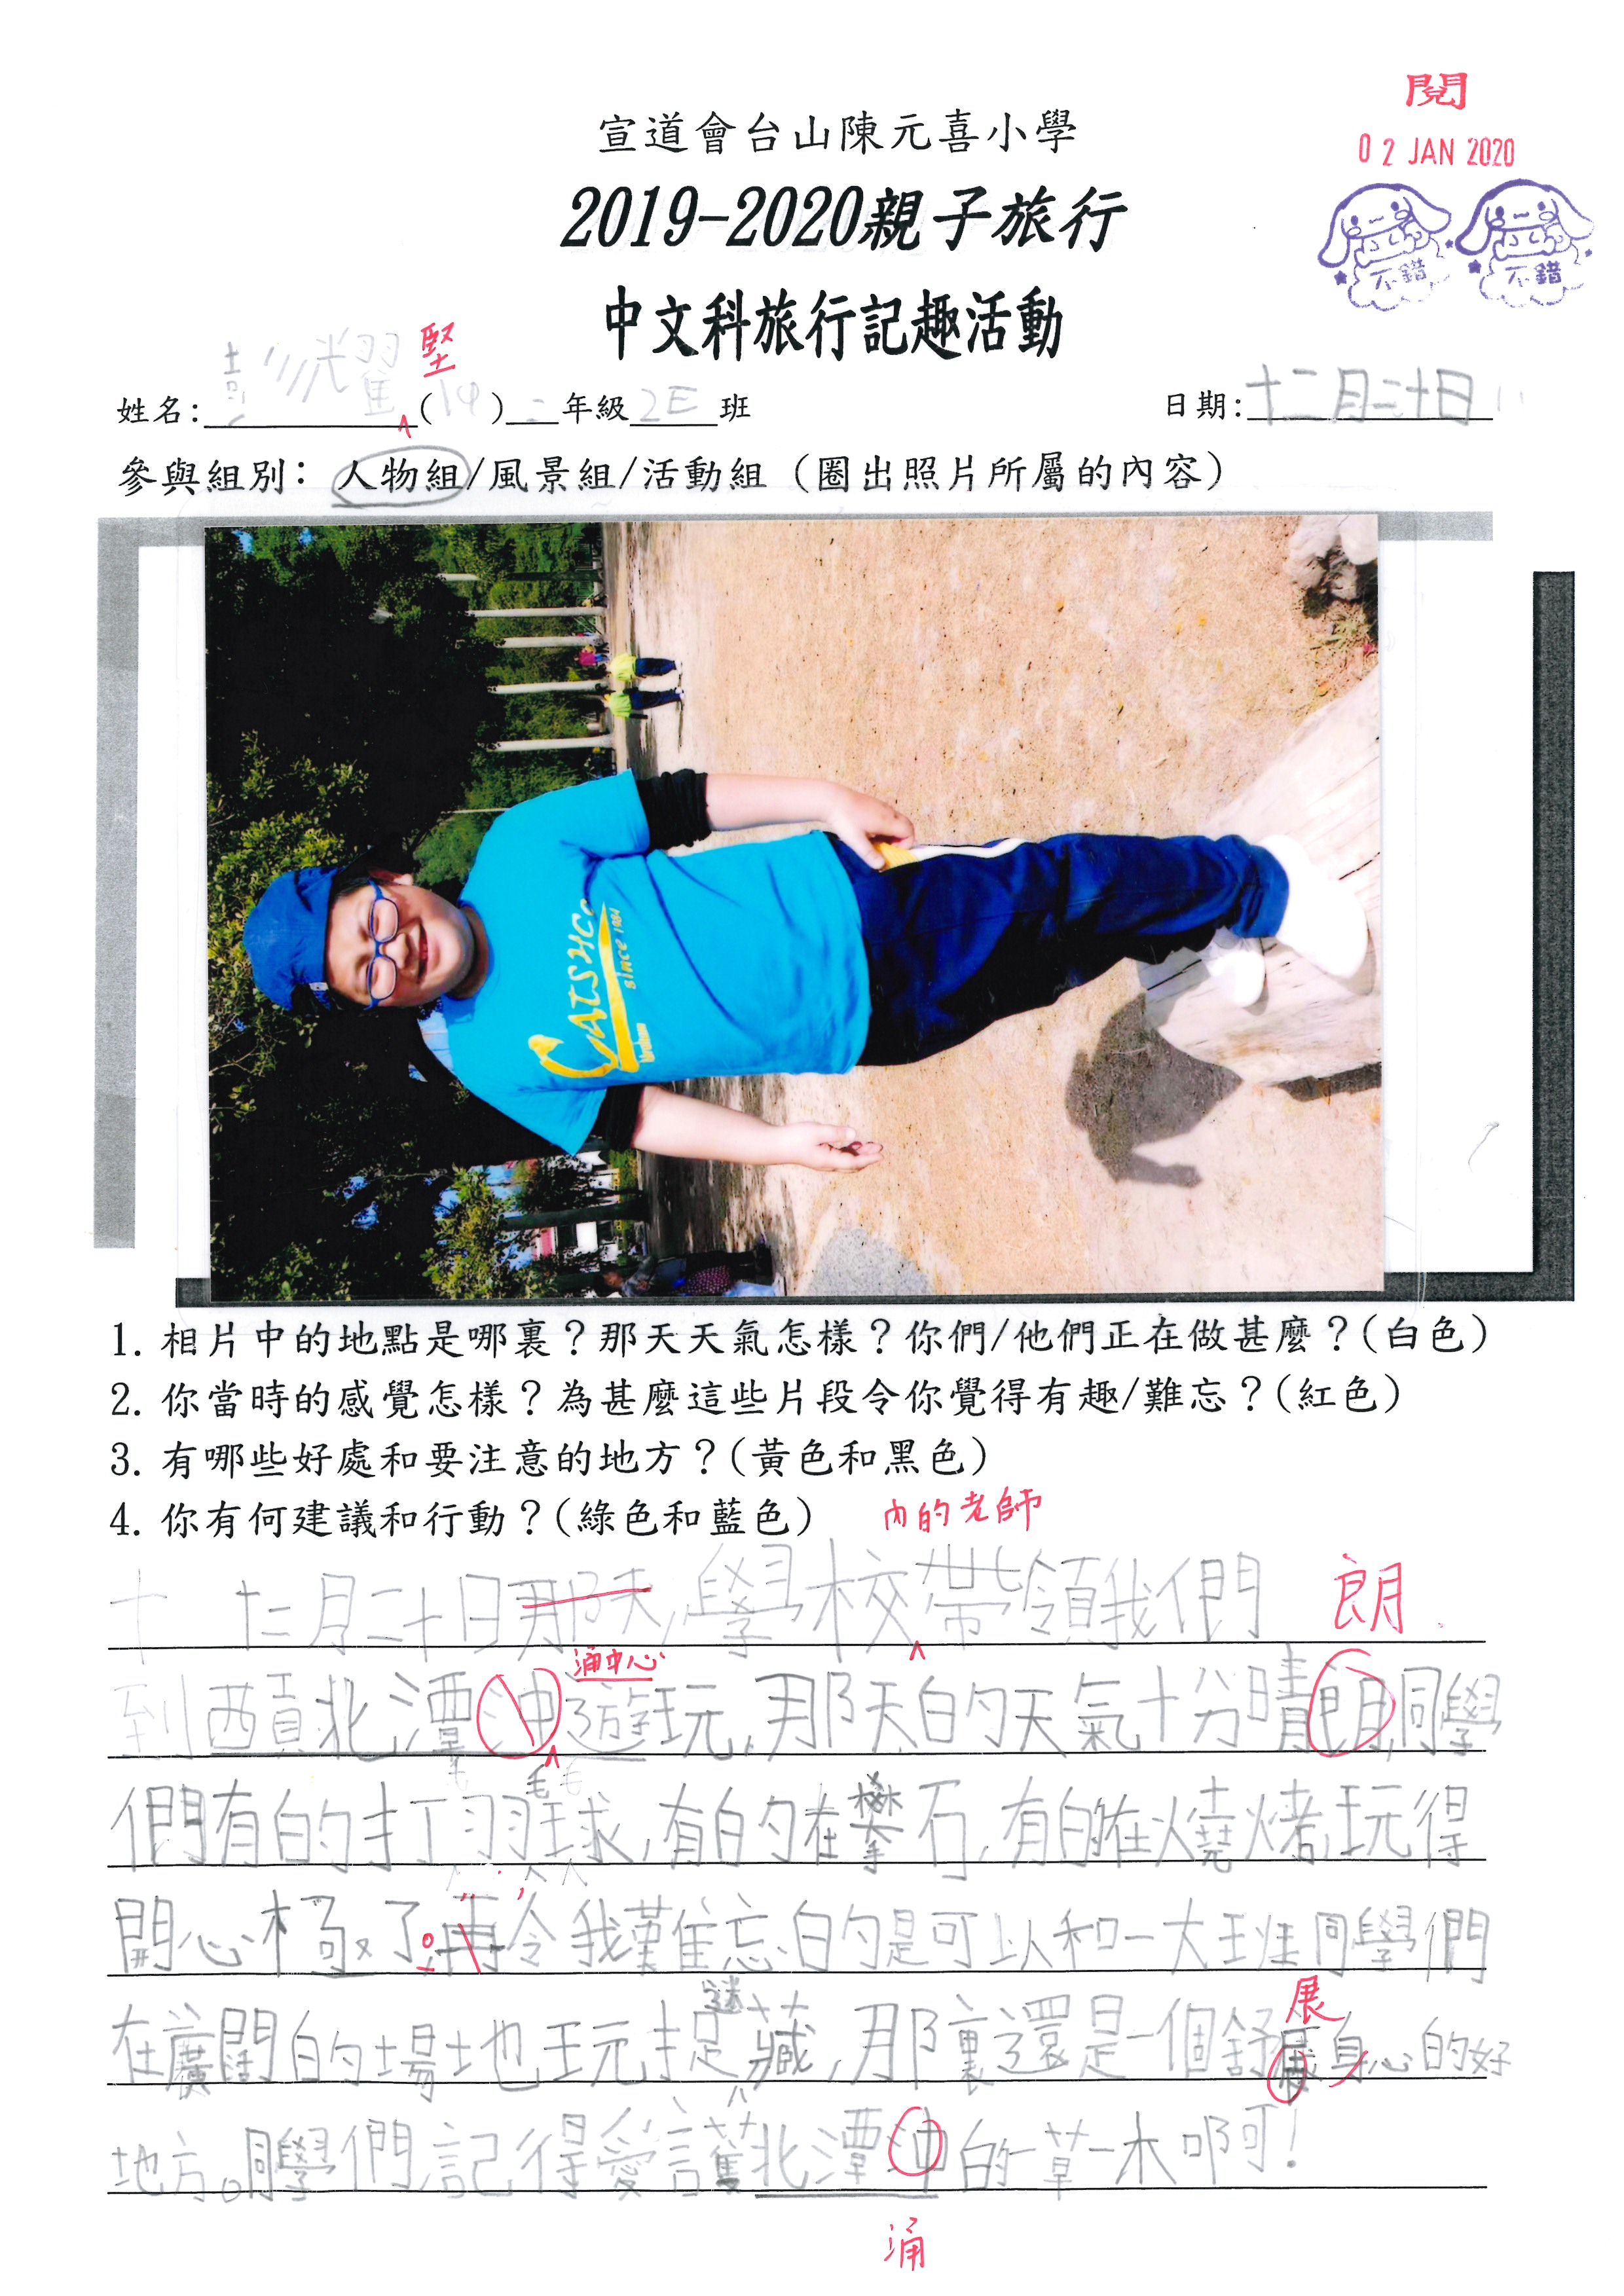 閱
02 JAN 2020
不錯 不錯
宣道會台山陳元喜小學
2019-2020親子旅行
中文科旅行記趣活動
堅
姓名:彭洸翟(14)二年級2E班 日期:十二月二十日
參與組別：人物組/風景組/活動組（圈出照片所屬的內容）
CATSHCC
since 1984
1. 相片中的地點是哪裏？那天天氣怎樣？你們/他們正在做甚麼？(白色)
2. 你當時的感覺怎樣？為甚麼這些片段令你覺得有趣/難忘？(紅色)
3. 有哪些好處和要注意的地方？(黃色和黑色)
4. 你有何建議和行動？(綠色和藍色)
內的老師
十二月二十日那天,學校帶領我們
朗
涌中心
到西貢北潭沖遊玩,那天的天氣十分晴朗,同學
們有的打羽毛球,有的在攀石,有的在燒烤,玩得
開心極了。再令我難忘的是可以和一大班同學們
展
在廣闊的場地玩捉迷藏,那裏還是一個舒展身心的好
地方。同學們,記得愛護北潭沖的一草一木啊!
涌